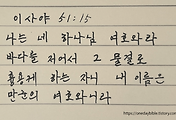 이사야 51:15
나는 네 하나님 여호와라
바다를 저어서 그 물결을
흉용케 하는 자니 내 이름은
만군의 여호와니라
https://onedaybible.tistory.com